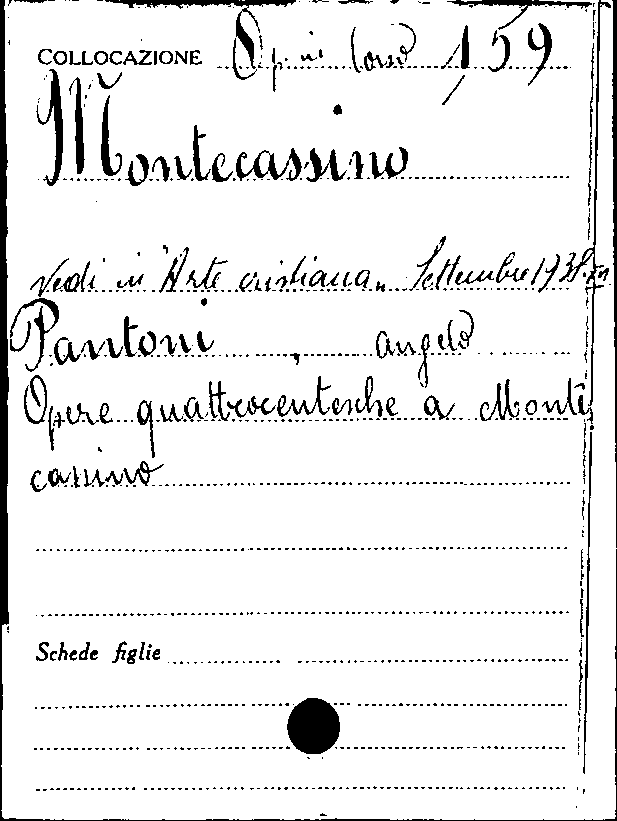 COLLOCAZIONE Op. in corso 159
Montecassino
Vedi in "Arte cristiana„ Settembre 1938.
Pantoni, angelo
Opere quattrocentesche a Monte
cassino
Schede figlie